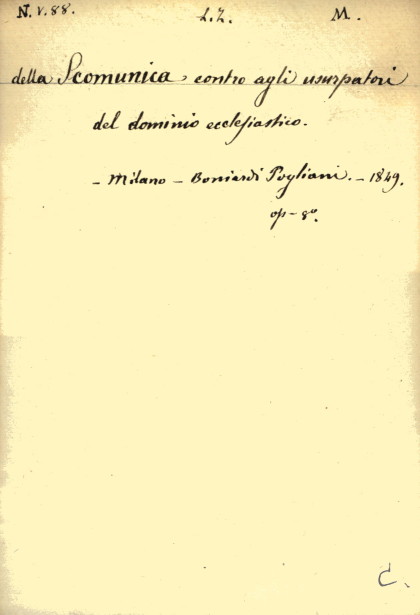 N. V. 88. L. Z. M.
della Scomunica, contro agli usurpatori
del dominio ecclesiastico.
- Milano - Boniardi Pogliani. - 1849.
op - 8º.
C.